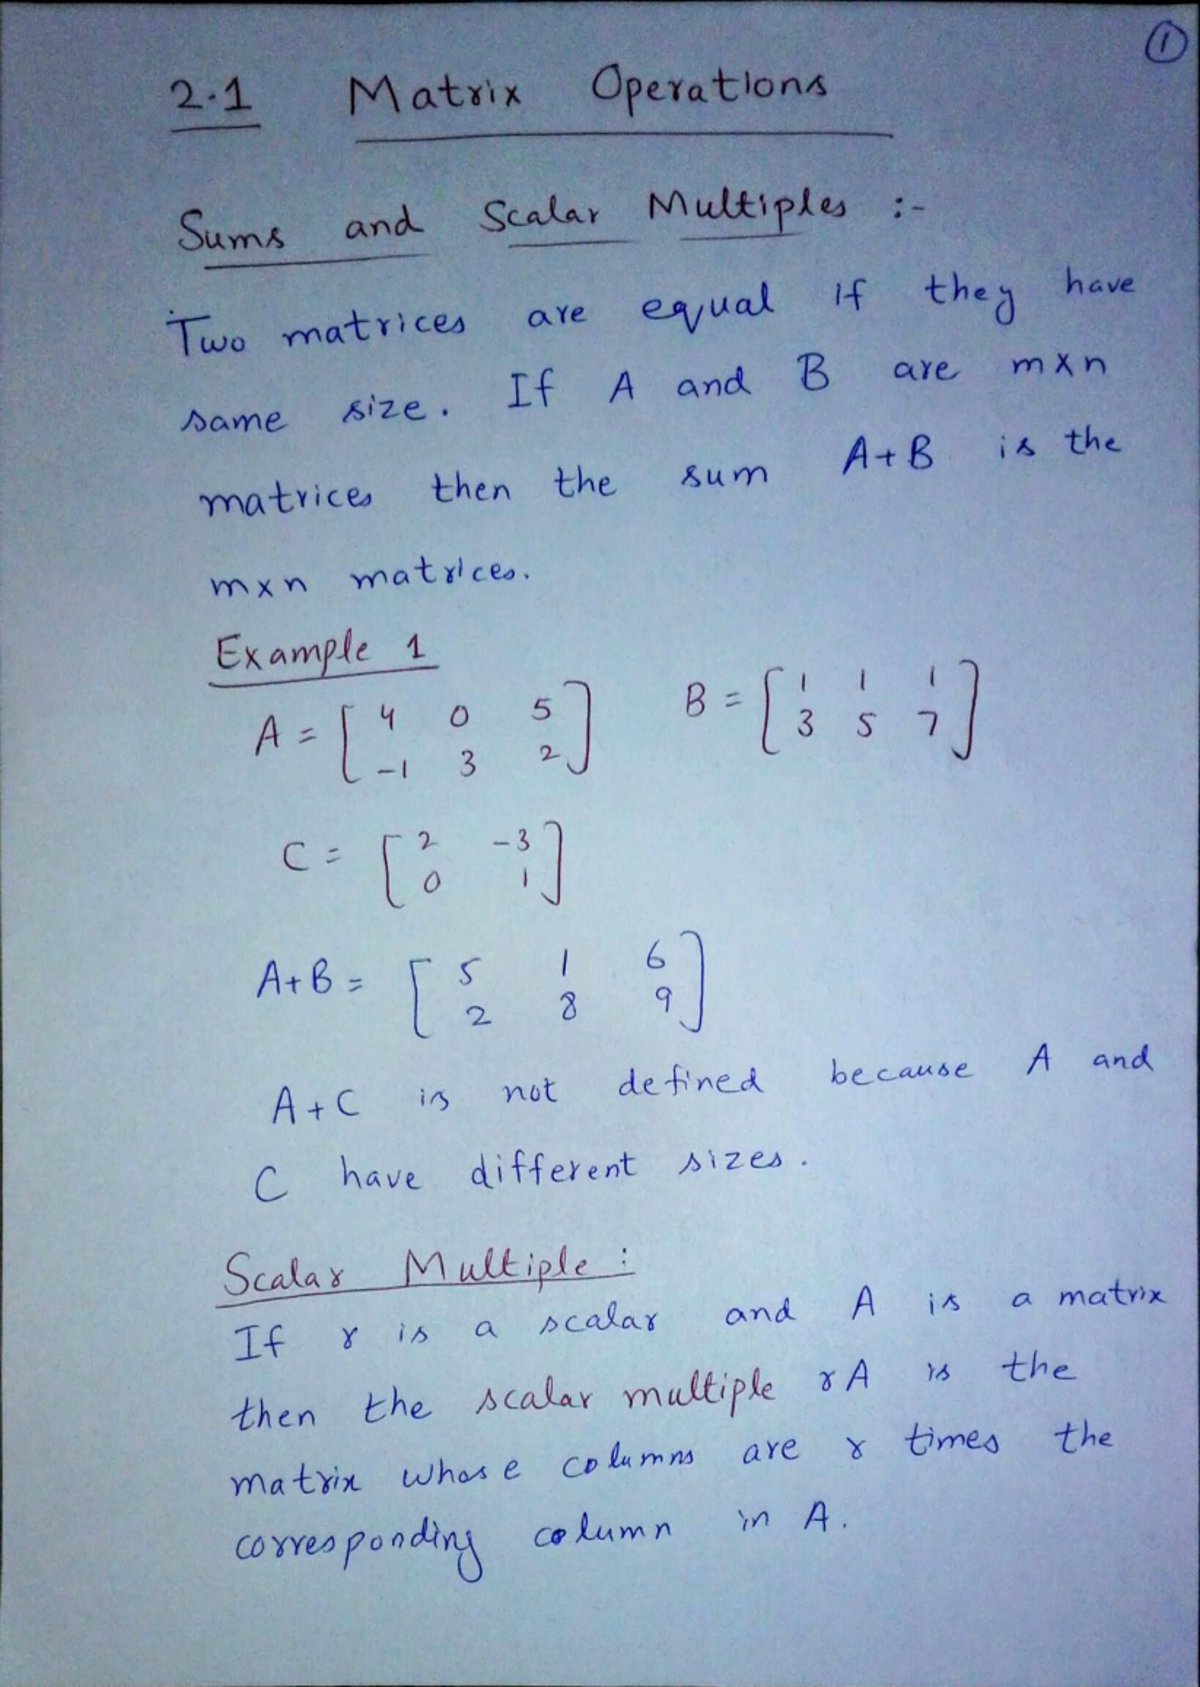 1
2.1 Matrix Operations
Sums and Scalar Multiples :-
Two matrices are equal if they have
same size. If A and B are m×n
matrices then the sum A+B is the
m×n matrices.
Example 1
A = [ 4 0 5 ] B = [ 1 1 1 ]
-1 3 2 3 5 7
C = [ 2 -3 ]
0 1
A+B = [ 5 1 6 ]
2 8 9
A+C is not defined because A and
C have different sizes.
Scalar Multiple :
If r is a scalar and A is a matrix
then the scalar multiple rA is the
matrix whose columns are r times the
corresponding column in A.